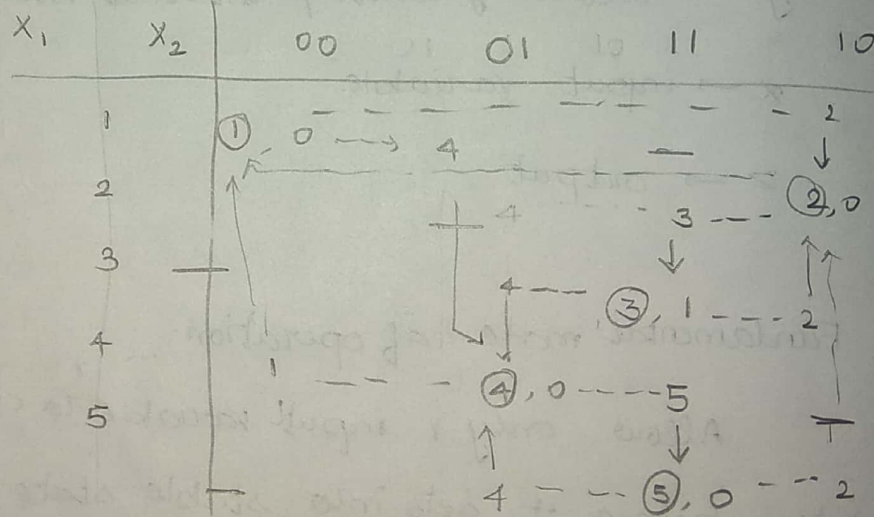 X₁ X₂ 00 01 11 10
1 ①, 0 4 — 2
2 4 3 ②, 0
3 — 4 ③, 1 2
4 1 ④, 0 5 —
5 — 4 ⑤, 0 2